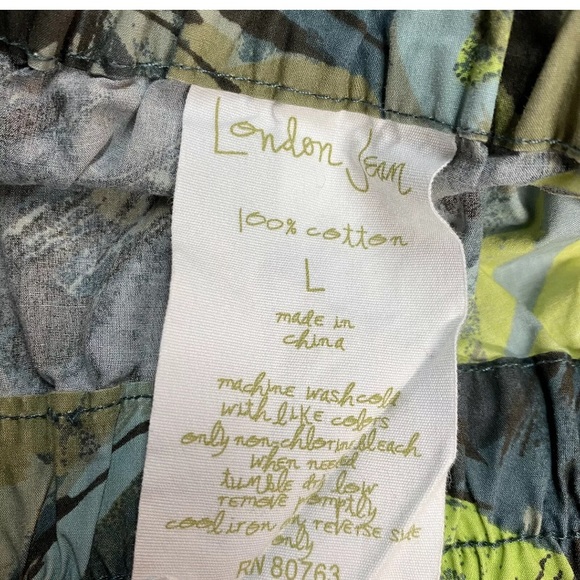 London Jean
100% cotton
L
made in
china
machine wash cold
with like colors
only non-chlorine bleach
when needed
tumble dry low
remove promptly
cool iron on reverse side
only
RN 80763